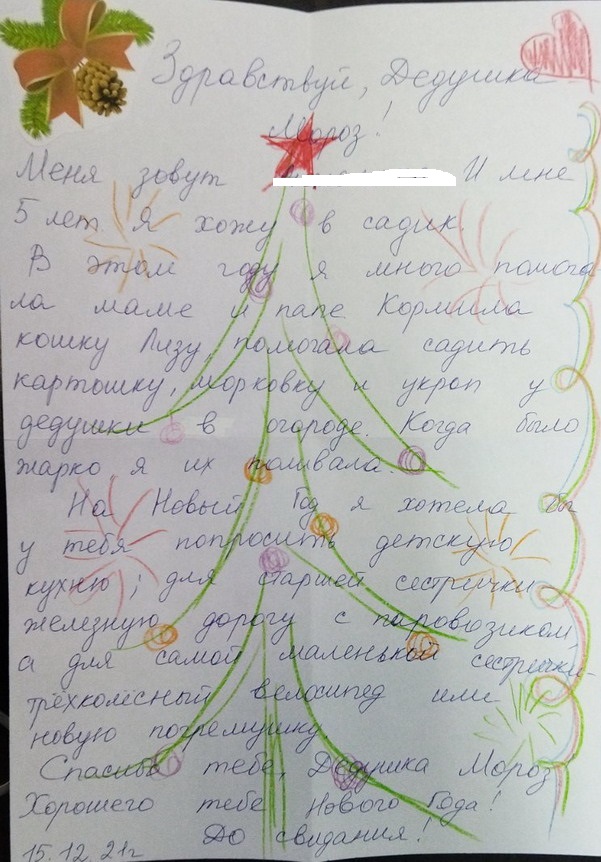 Здравствуй, Дедушка
Мороз!
Меня зовут И мне
5 лет. Я хожу в садик.
В этом году я много помога-
ла маме и папе. Кормила
кошку Лизу, помогала садить
картошку, морковку и укроп у
дедушки в огороде. Когда было
жарко я их поливала.
На Новый Год я хотела бы
у тебя попросить детскую
кухню; для старшей сестрички
железную дорогу с паровозиком,
а для самой маленькой сестрички-
трёхколёсный велосипед или
новую погремушку.
Спасибо тебе, Дедушка Мороз
Хорошего тебе Нового Года!
До свидания!
15.12.21г